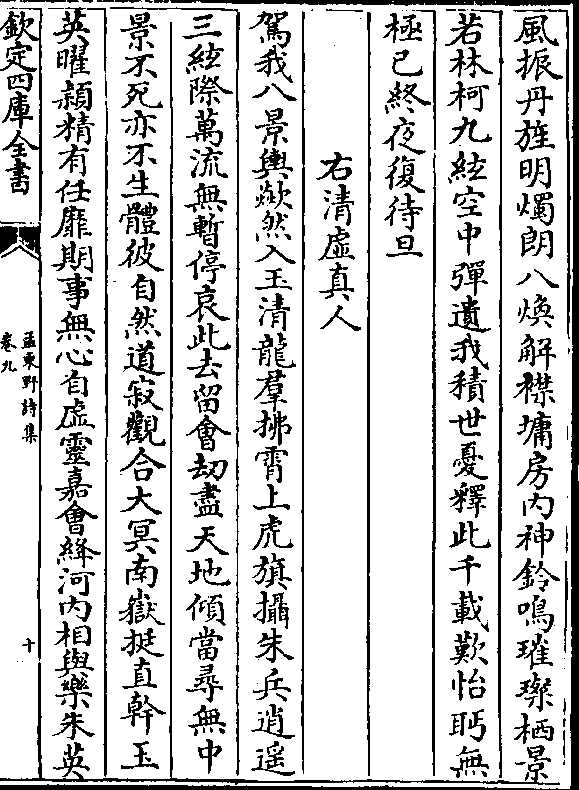 風振丹旌明燭朗八煥解襟墉房内神鈴鳴璀璨栖景
若林柯九絃空中彈遺我積世憂釋此千載歎怡眄無
極已終夜復待旦
右清虛真人
駕我八景輿欻然入玉清龍羣拂霄上虎旗攝朱兵逍遥
三絃際萬流無暫停哀此去留會劫盡天地傾當尋無中
景不死亦不生體彼自然道寂觀合大冥南嶽挺直幹玉
英曜穎精有任靡期事無心自虛靈嘉會絳河内相與樂朱英
欽定四庫全書
孟東野詩集
卷九
十